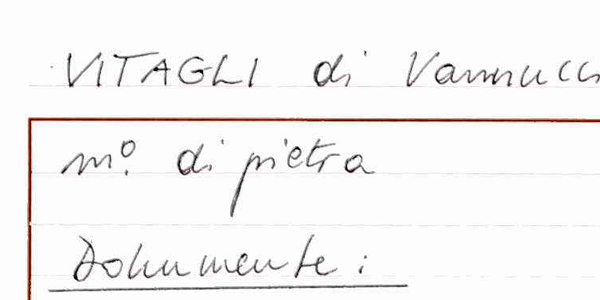 VITAGLI di Vannucci
m°. di pietra
Dokumente: